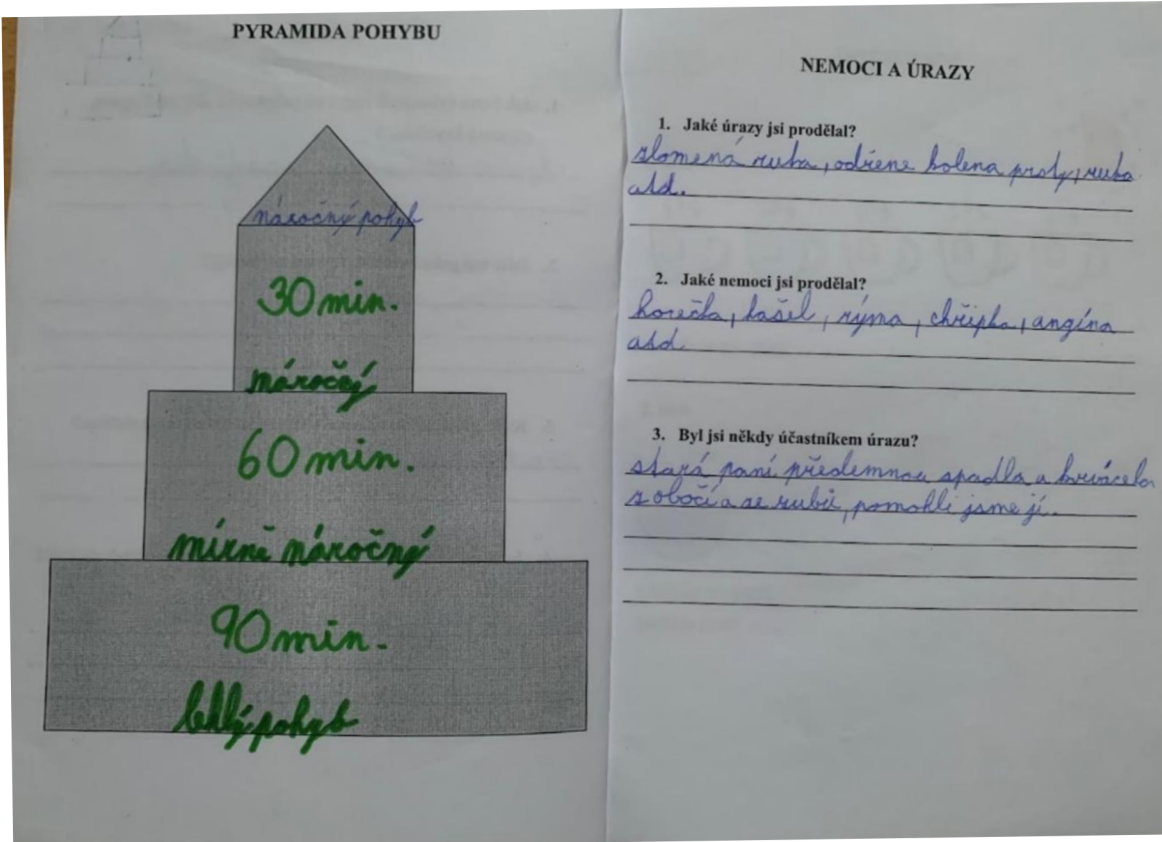 PYRAMIDA POHYBU
náročný pohyb
30 min.
náročný
60 min.
mírně náročný
90 min.
lehký pohyb
NEMOCI A ÚRAZY
1. Jaké úrazy jsi prodělal?
zlomená ruka, odřene kolena prsty, ruka
atd.
2. Jaké nemoci jsi prodělal?
horečka, kašel, rýma, chřipka, angína
atd.
3. Byl jsi někdy účastníkem úrazu?
stará paní předemnou spadla a krvácela
z obočí a ze ruků, pomohli jsme jí.